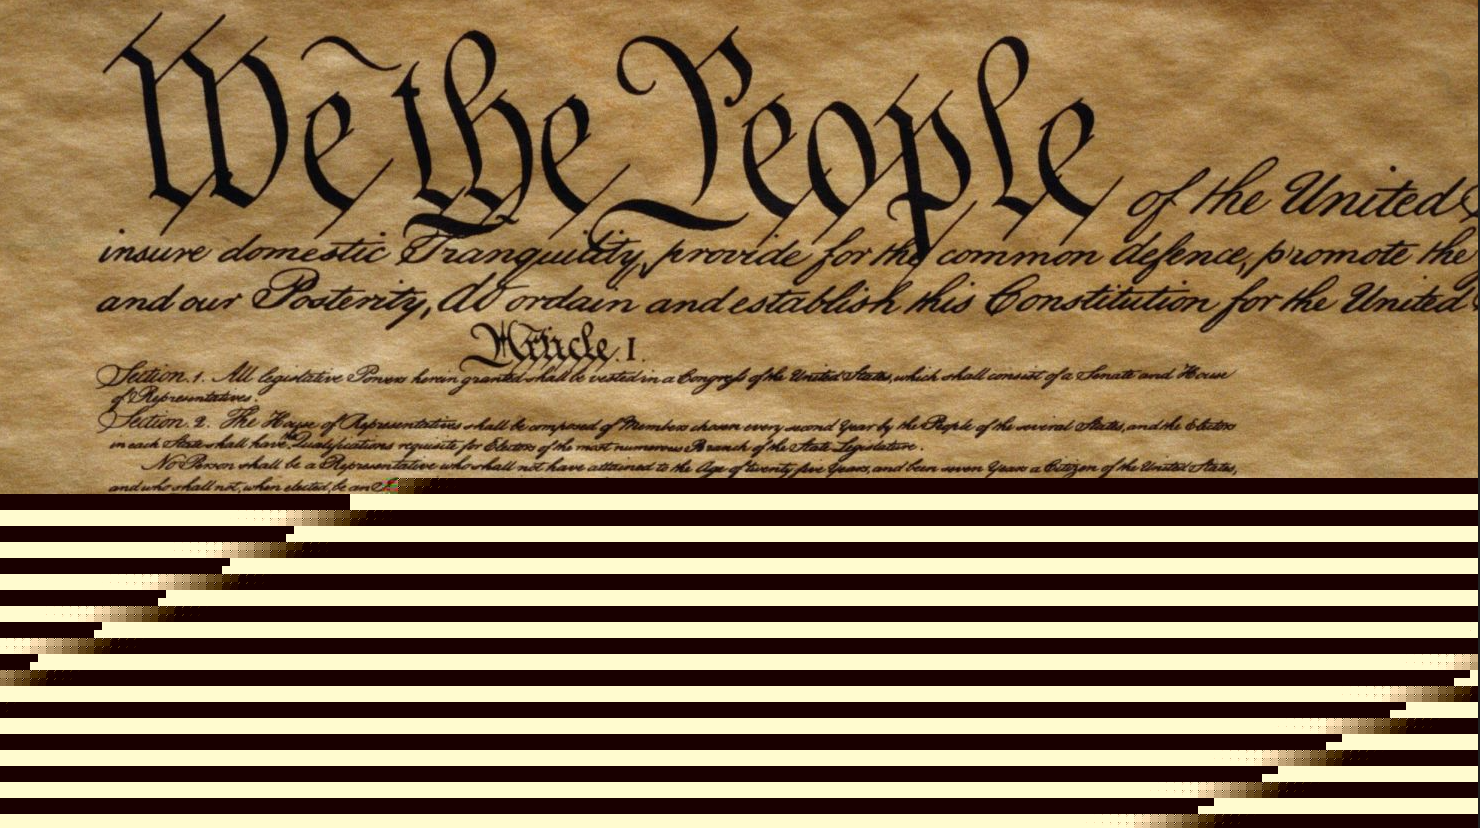 We the People of the United
insure domestic Tranquility, provide for the common defence, promote the
and our Posterity, do ordain and establish this Constitution for the United
Article. I.
Section. 1. All legislative Powers herein granted shall be vested in a Congress of the United States, which shall consist of a Senate and House
of Representatives.
Section. 2. The House of Representatives shall be composed of Members chosen every second Year by the People of the several States, and the Electors
in each State shall have the Qualifications requisite for Electors of the most numerous Branch of the State Legislature.
No Person shall be a Representative who shall not have attained to the Age of twenty five Years, and been seven Years a Citizen of the United States,
and who shall not, when elected, be an